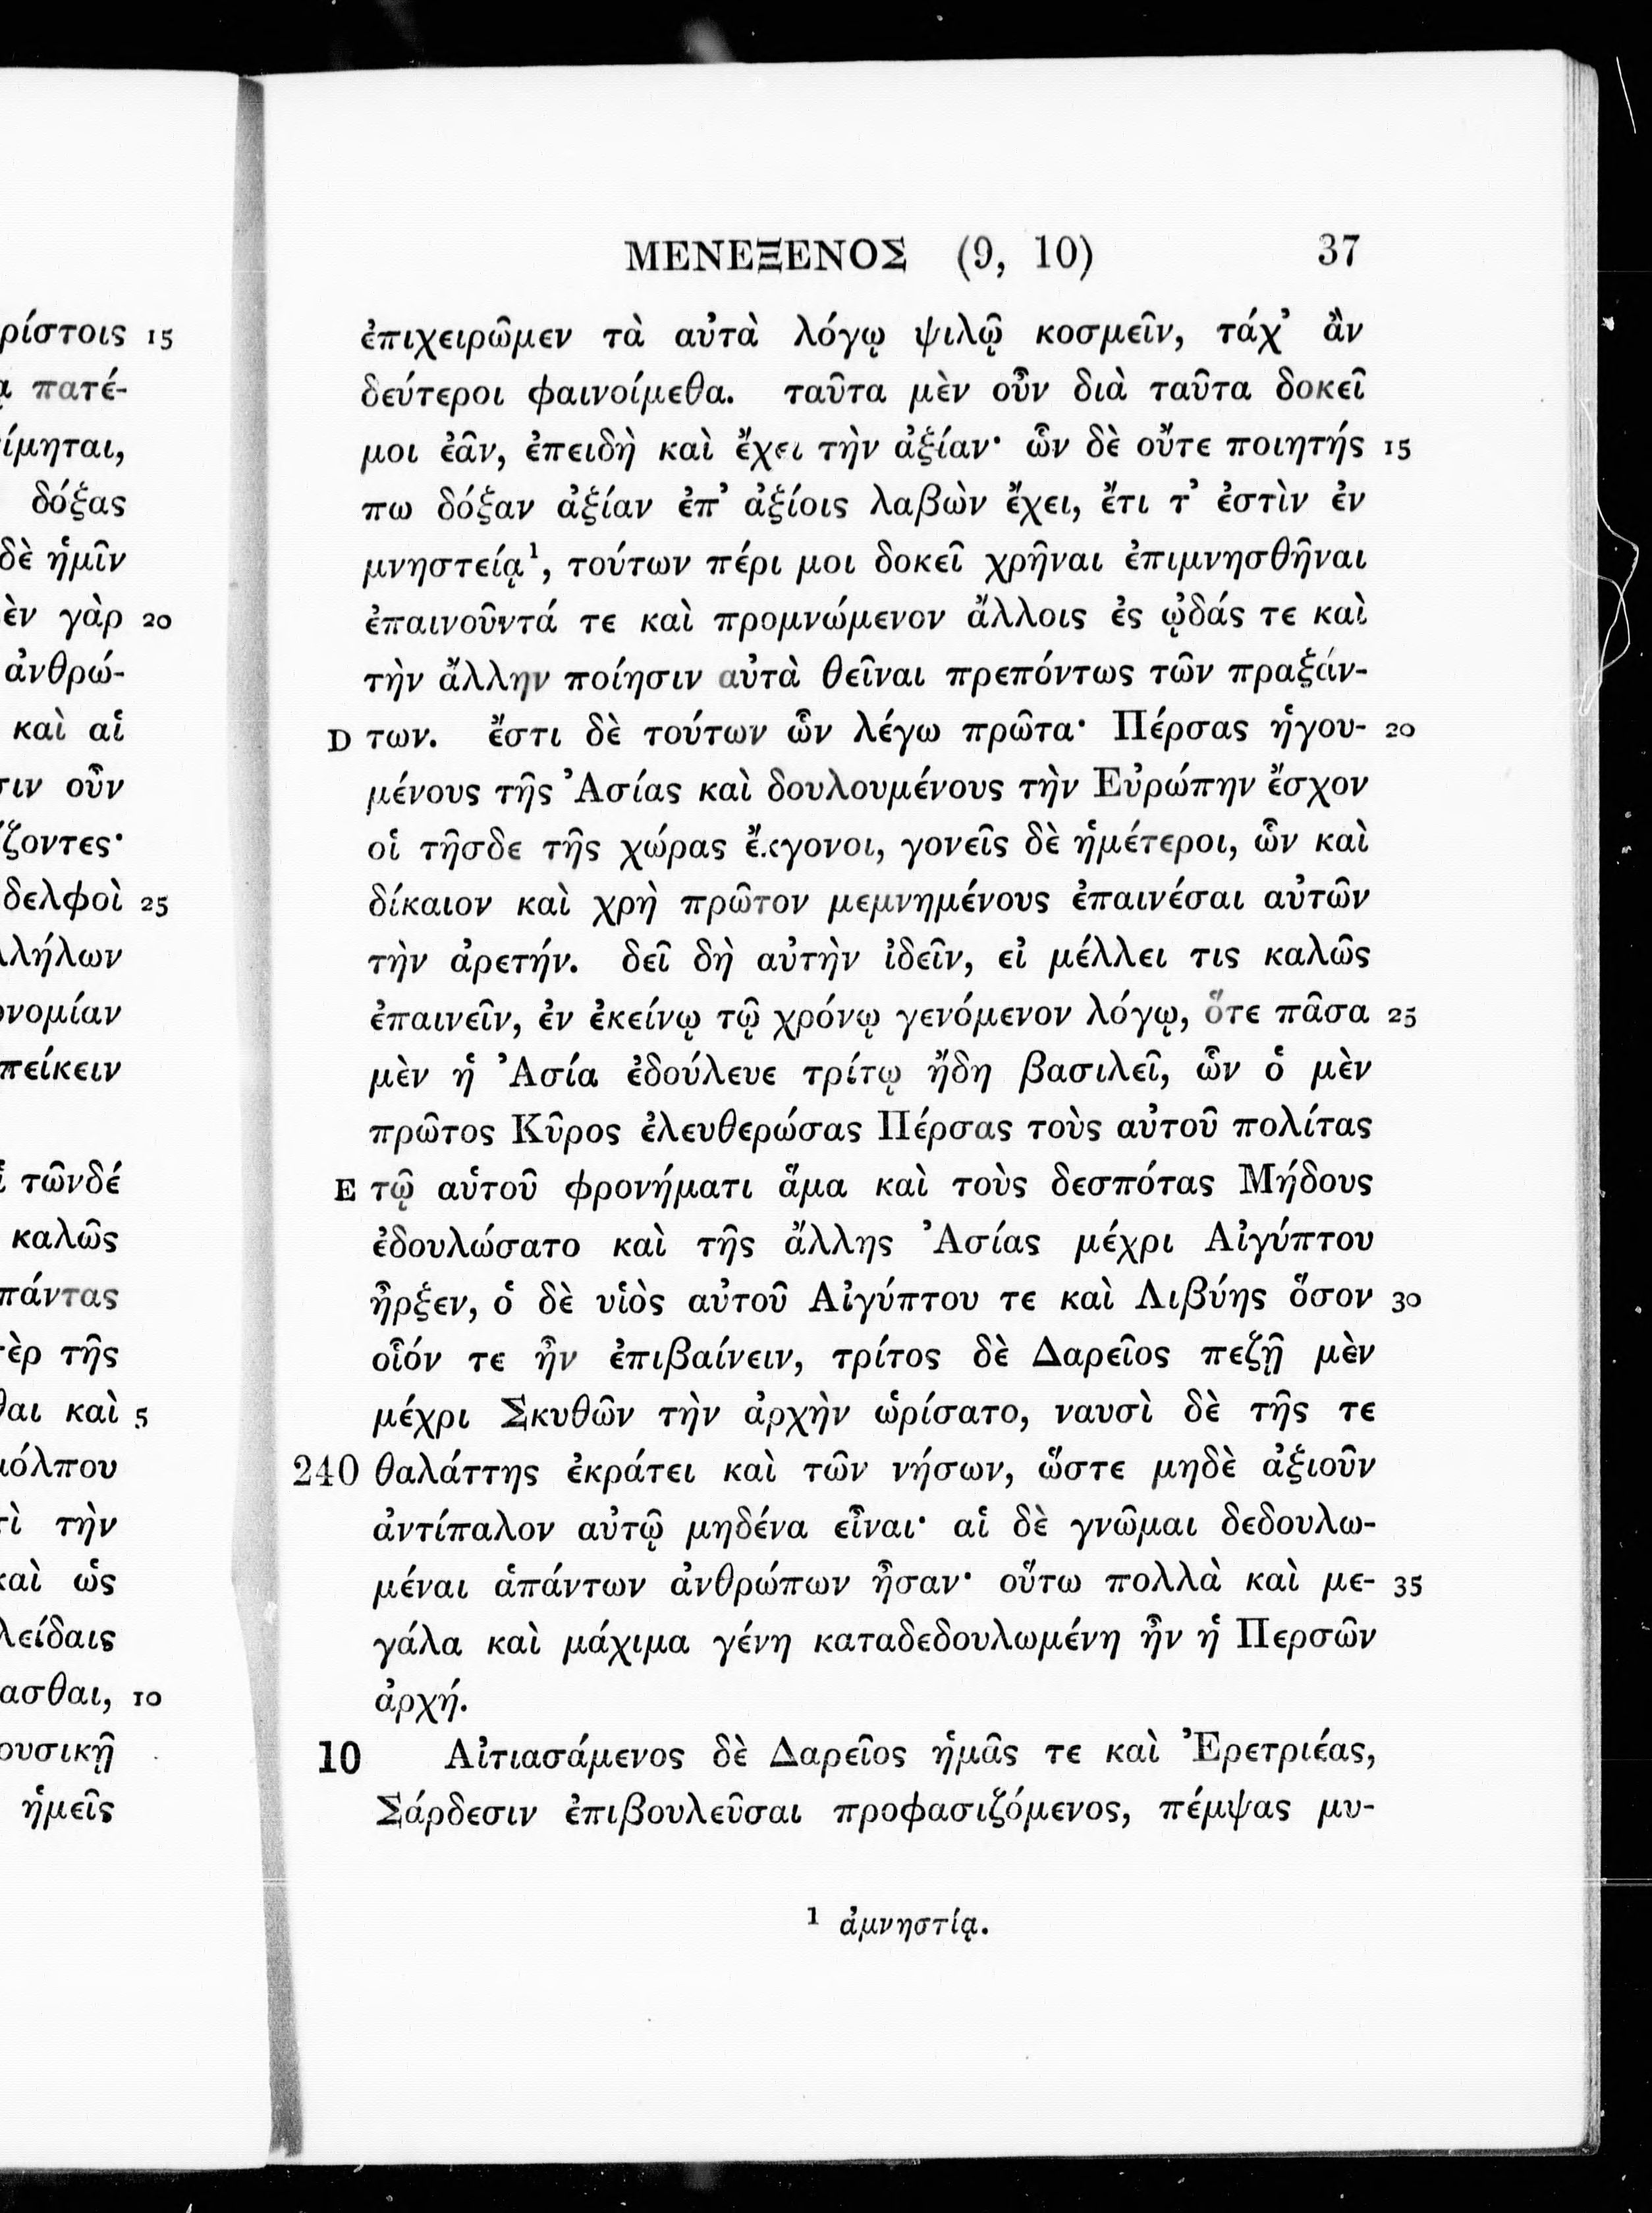 ρίστοις 15
πατέ-
ίμηται,
δόξας
δὲ ἡμῖν
ὲν γὰρ 20
ἀνθρώ-
καὶ αἱ
ιν οὖν
ζοντες·
δελφοὶ 25
λλήλων
νομίαν
πείκειν
τῶνδέ
καλῶς
πάντας
ὲρ τῆς
θαι καὶ 5
μόλπου
τὴν
καὶ ὡς
λείδαις
ασθαι, 10
ουσικῇ
ἡμεῖς
ΜΕΝΕΞΕΝΟΣ (9, 10) 37
ἐπιχειρῶμεν τὰ αὐτὰ λόγῳ ψιλῷ κοσμεῖν, τάχ’ ἂν
δεύτεροι φαινοίμεθα. ταῦτα μὲν οὖν διὰ ταῦτα δοκεῖ
μοι ἐᾶν, ἐπειδὴ καὶ ἔχει τὴν ἀξίαν· ὧν δὲ οὔτε ποιητής 15
πω δόξαν ἀξίαν ἐπ’ ἀξίοις λαβὼν ἔχει, ἔτι τ’ ἐστὶν ἐν
μνηστείᾳ¹, τούτων πέρι μοι δοκεῖ χρῆναι ἐπιμνησθῆναι
ἐπαινοῦντά τε καὶ προμνώμενον ἄλλοις ἐς ᾠδάς τε καὶ
τὴν ἄλλην ποίησιν αὐτὰ θεῖναι πρεπόντως τῶν πραξάν-
D των. ἔστι δὲ τούτων ὧν λέγω πρῶτα· Πέρσας ἡγου- 20
μένους τῆς Ἀσίας καὶ δουλουμένους τὴν Εὐρώπην ἔσχον
οἱ τῆσδε τῆς χώρας ἔκγονοι, γονεῖς δὲ ἡμέτεροι, ὧν καὶ
δίκαιον καὶ χρὴ πρῶτον μεμνημένους ἐπαινέσαι αὐτῶν
τὴν ἀρετήν. δεῖ δὴ αὐτὴν ἰδεῖν, εἰ μέλλει τις καλῶς
ἐπαινεῖν, ἐν ἐκείνῳ τῷ χρόνῳ γενόμενον λόγῳ, ὅτε πᾶσα 25
μὲν ἡ Ἀσία ἐδούλευε τρίτῳ ἤδη βασιλεῖ, ὧν ὁ μὲν
πρῶτος Κῦρος ἐλευθερώσας Πέρσας τοὺς αὐτοῦ πολίτας
E τῷ αὑτοῦ φρονήματι ἅμα καὶ τοὺς δεσπότας Μήδους
ἐδουλώσατο καὶ τῆς ἄλλης Ἀσίας μέχρι Αἰγύπτου
ἦρξεν, ὁ δὲ υἱὸς αὐτοῦ Αἰγύπτου τε καὶ Λιβύης ὅσον 30
οἷόν τε ἦν ἐπιβαίνειν, τρίτος δὲ Δαρεῖος πεζῇ μὲν
μέχρι Σκυθῶν τὴν ἀρχὴν ὡρίσατο, ναυσὶ δὲ τῆς τε
240 θαλάττης ἐκράτει καὶ τῶν νήσων, ὥστε μηδὲ ἀξιοῦν
ἀντίπαλον αὐτῷ μηδένα εἶναι· αἱ δὲ γνῶμαι δεδουλω-
μέναι ἁπάντων ἀνθρώπων ἦσαν· οὕτω πολλὰ καὶ με- 35
γάλα καὶ μάχιμα γένη καταδεδουλωμένη ἦν ἡ Περσῶν
ἀρχή.
10 Αἰτιασάμενος δὲ Δαρεῖος ἡμᾶς τε καὶ Ἐρετριέας,
Σάρδεσιν ἐπιβουλεῦσαι προφασιζόμενος, πέμψας μυ-
¹ ἀμνηστίᾳ.